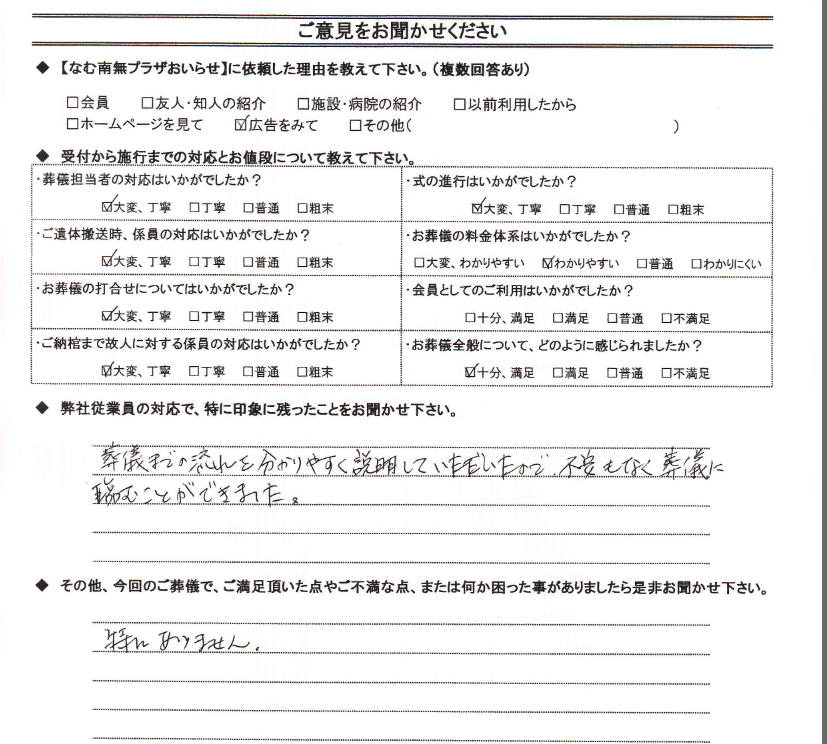 ご意見をお聞かせください
◆ 【なむ南無プラザおいらせ】に依頼した理由を教えて下さい。(複数回答あり)
☐会員 ☐友人・知人の紹介 ☐施設・病院の紹介 ☐以前利用したから
☐ホームページを見て ☑広告をみて ☐その他( )
◆ 受付から施行までの対応とお値段について教えて下さい。
・葬儀担当者の対応はいかがでしたか?
☑大変、丁寧 ☐丁寧 ☐普通 ☐粗末
・式の進行はいかがでしたか?
☑大変、丁寧 ☐丁寧 ☐普通 ☐粗末
・ご遺体搬送時、係員の対応はいかがでしたか?
☑大変、丁寧 ☐丁寧 ☐普通 ☐粗末
・お葬儀の料金体系はいかがでしたか?
☐大変、わかりやすい ☑わかりやすい ☐普通 ☐わかりにくい
・お葬儀の打合せについてはいかがでしたか?
☑大変、丁寧 ☐丁寧 ☐普通 ☐粗末
・会員としてのご利用はいかがでしたか?
☐十分、満足 ☐満足 ☐普通 ☐不満足
・ご納棺まで故人に対する係員の対応はいかがでしたか?
☑大変、丁寧 ☐丁寧 ☐普通 ☐粗末
・お葬儀全般について、どのように感じられましたか?
☑十分、満足 ☐満足 ☐普通 ☐不満足
◆ 弊社従業員の対応で、特に印象に残ったことをお聞かせ下さい。
葬儀までの流れを分かりやすく説明していただいたので、不安もなく葬儀に
臨むことができました。
◆ その他、今回のご葬儀で、ご満足頂いた点やご不満な点、または何か困った事がありましたら是非お聞かせ下さい。
特にありません。